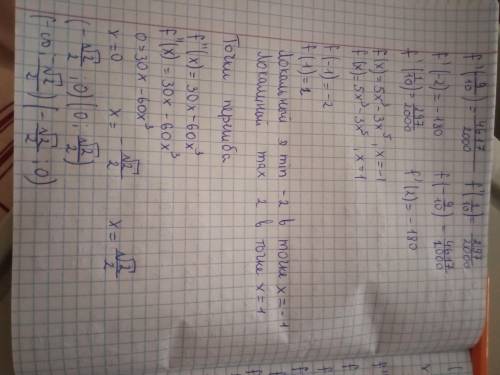 f'(-9/10) = 4617/2000   f'(1/10) = 297/2000
f'(-2) = -180   f'(-9/10) = 4617/2000
f'(1/10) = 297/2000   f'(2) = -180
f(x) = 5x³-3x⁵, x=-1
f(x) = 5x³-3x⁵, x=1
f(-1) = -2
f(1) = 2
Локальной в min -2 в точке x=-1
Локальный max 2 в точке x=1
Точки перегиба
f''(x) = 30x-60x³
f''(x) = 30x-60x³
0 = 30x-60x³
x=0   x = -√2/2   x = √2/2
(-√2/2; 0)(0; √2/2)
(-∞; -√2/2)(-√2/2; 0)